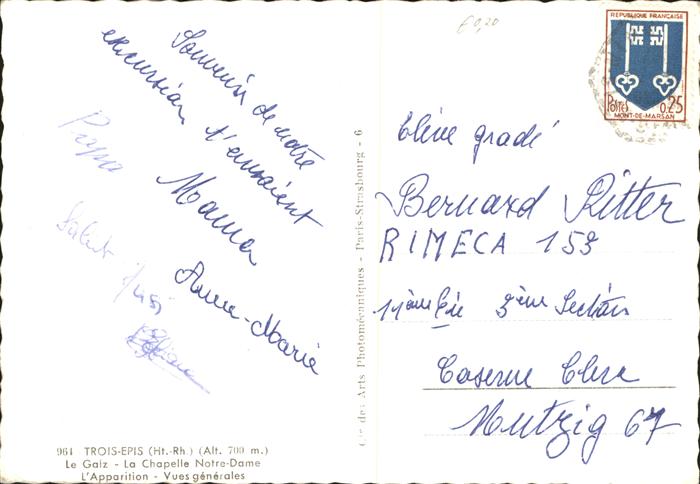 £0,20
REPUBLIQUE FRANÇAISE
Postes 0,25
MONT-DE-MARSAN
Souvenir de notre
excursion t'envoient
Papa Maman
Salut Anne-Marie
Elève gradé
Bernard Ritter
RIMECA 153
11ème Cie 3ème Section
Caserne Clerc
Mutzig 67
Cie des Arts Photomécaniques - Paris-Strasbourg - 6
961 TROIS-EPIS (Ht.-Rh.) (Alt. 700 m.)
Le Galz - La Chapelle Notre-Dame
L'Apparition - Vues générales